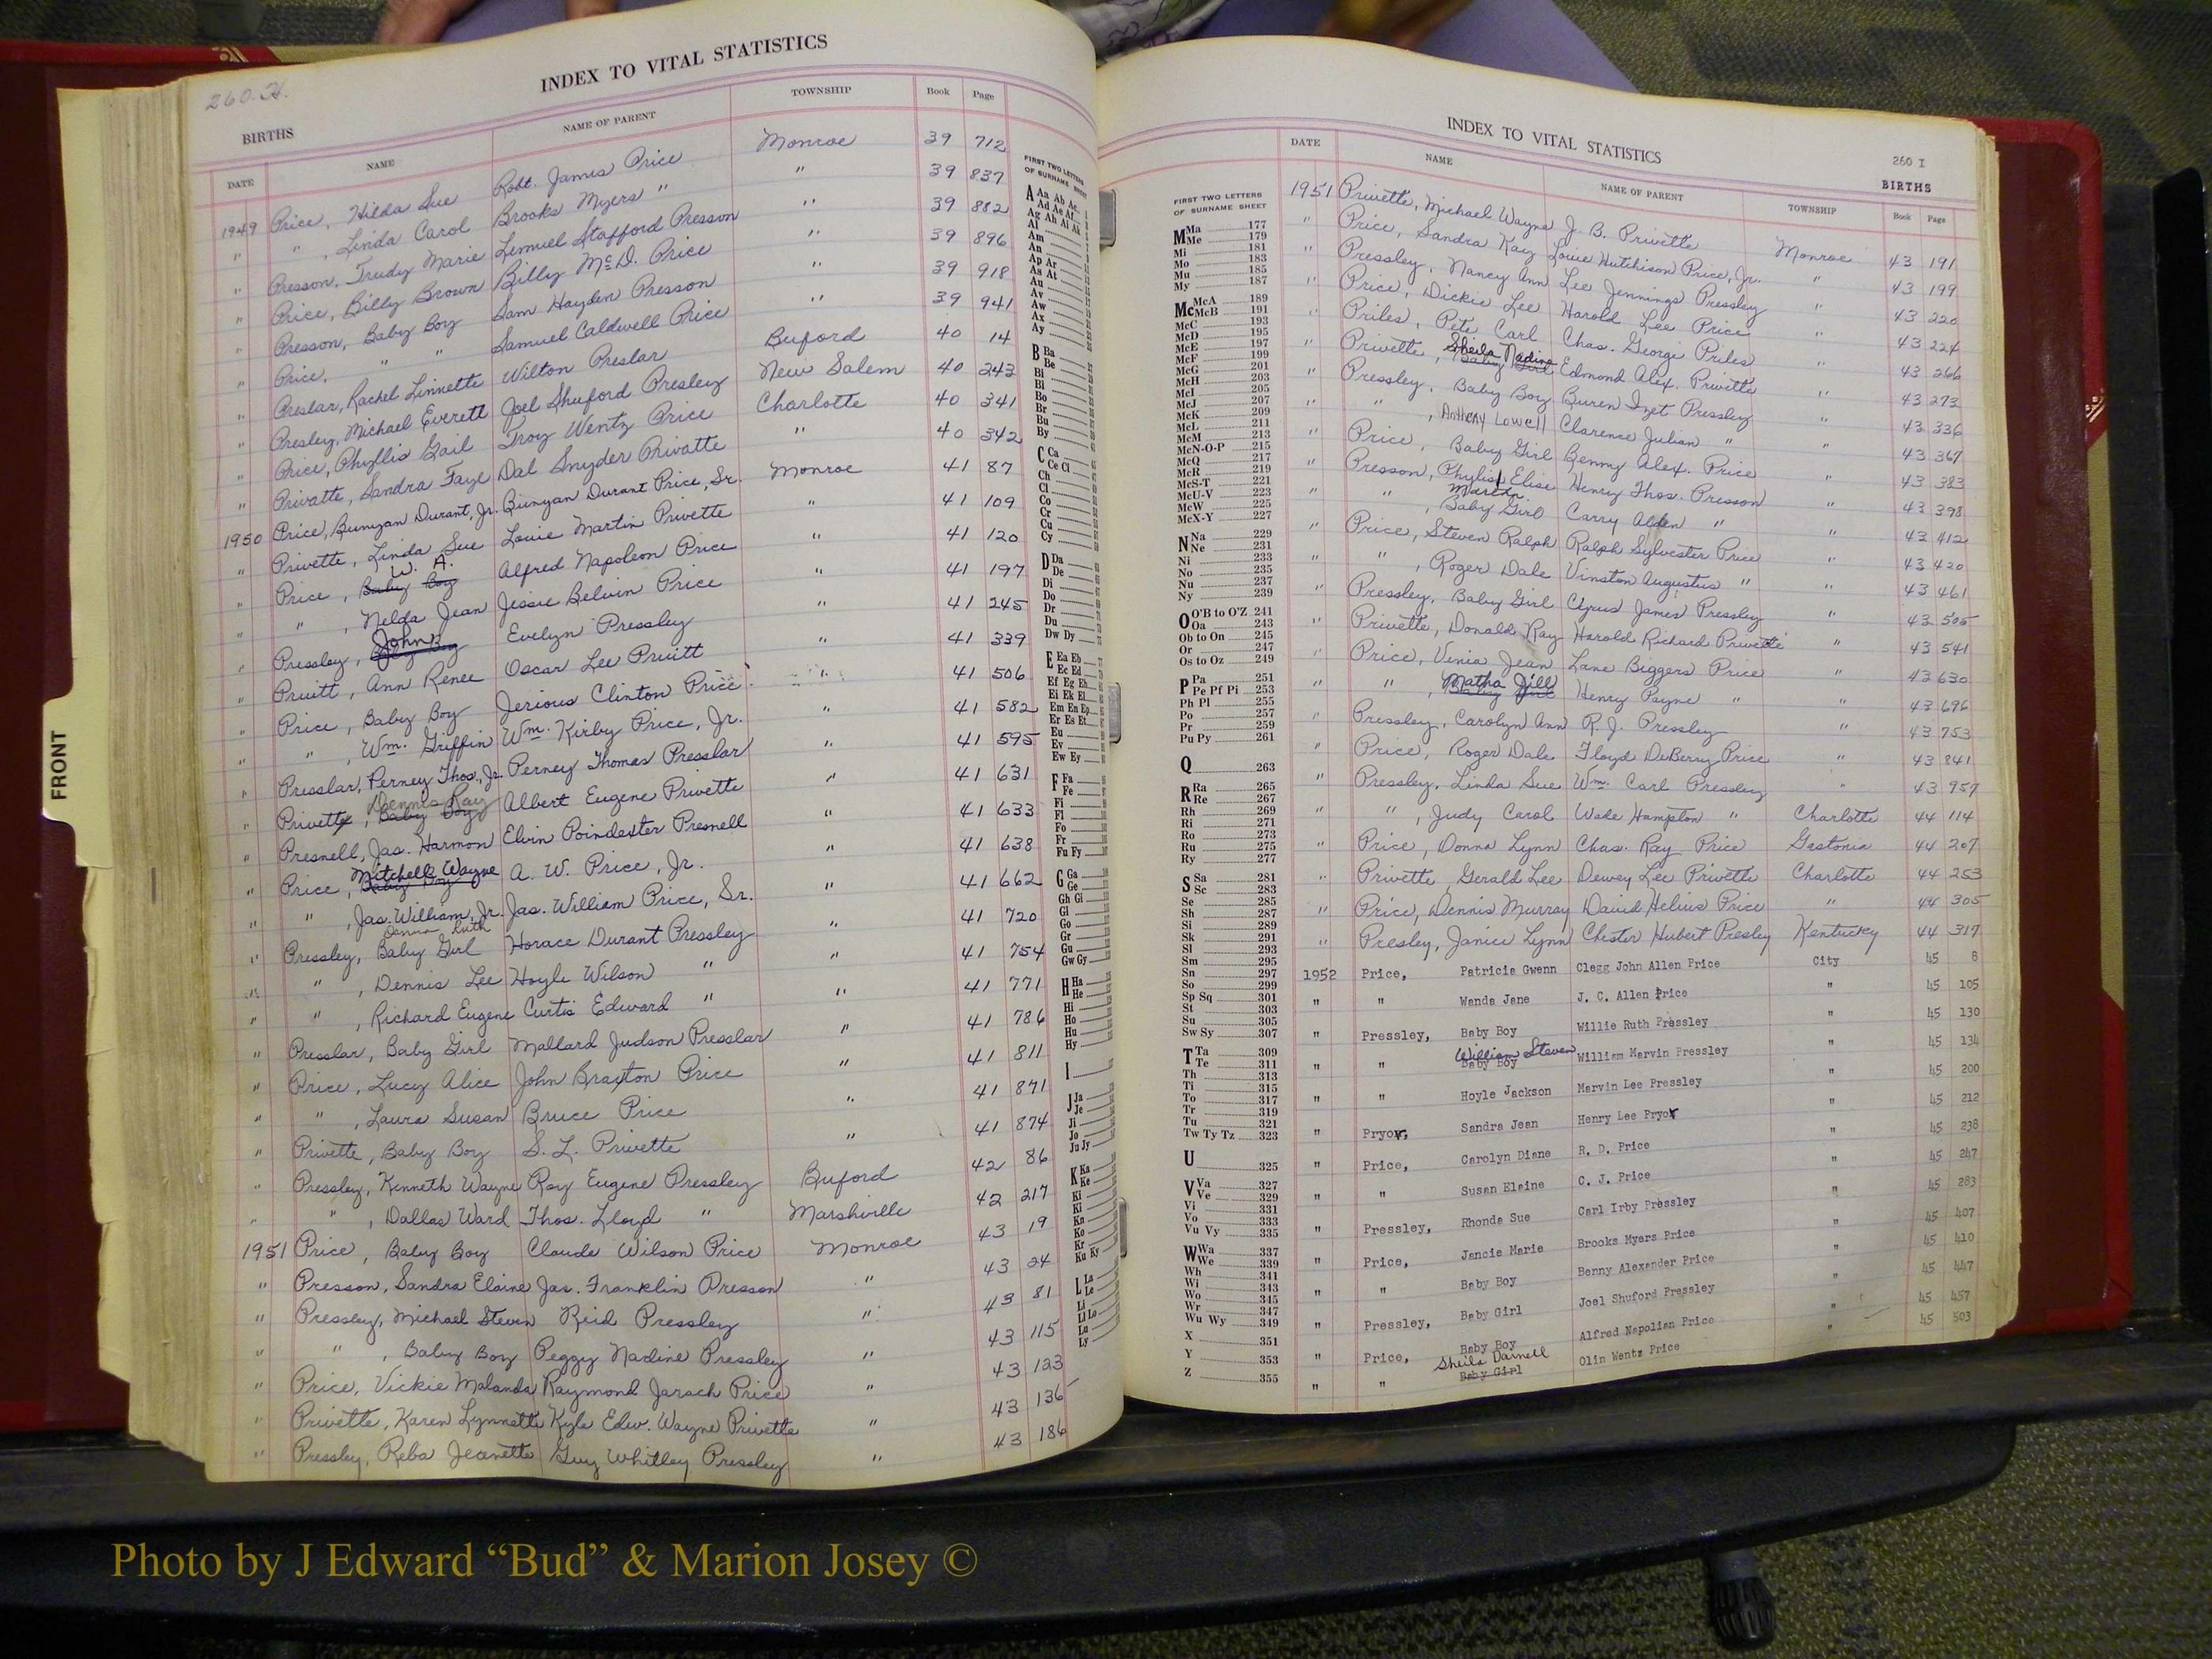 260 H.
INDEX TO VITAL STATISTICS
BIRTHS
DATE NAME NAME OF PARENT TOWNSHIP Book Page
1949 Price, Hilda Sue Robt. James Price Monroe 39 712
" " , Linda Carol Brooks Myers " " 39 837
" Presson, Trudy Marie Lemuel Stafford Presson " 39 882
" Price, Billy Brown Billy McD. Price " 39 896
" Presson, Baby Boy Sam Hayden Presson " 39 918
" Price, " " Samuel Caldwell Price " 39 941
" Preslar, Rachel Linnette Wilton Preslar Buford 40 14
" Presley, Michael Everett Joel Shuford Presley New Salem 40 243
" Price, Phyllis Gail Troy Wentz Price Charlotte 40 341
" Privatte, Sandra Faye Dal Snyder Privatte " 40 342
1950 Price, Bunyan Durant, Jr. Bunyan Durant Price, Sr. Monroe 41 87
" Privette, Linda Sue Louie Martin Privette " 41 109
" Price, W. A. Baby Boy Alfred Napoleon Price " 41 120
" " , Nelda Jean Jessie Belvin Price " 41 197
" Pressley, John Baby Boy Evelyn Pressley " 41 245
" Pruitt, Ann Renee Oscar Lee Pruitt " 41 339
" Price, Baby Boy Jerious Clinton Price " 41 506
" " , Wm. Griffin Wm. Kirby Price, Jr. " 41 582
" Presslar, Perney Thos., Jr. Perney Thomas Presslar " 41 595
" Privette, Dennis Ray Baby Boy Albert Eugene Privette " 41 631
" Presnell, Jas. Harmon Elvin Poindexter Presnell " 41 633
" Price, Mitchell Wayne Baby Boy A. W. Price, Jr. " 41 638
" " , Jas. William, Jr. Jas. William Price, Sr. " 41 662
" Pressley, Donna Ruth Baby Girl Horace Durant Pressley " 41 720
" " , Dennis Lee Hoyle Wilson " " 41 754
" " , Richard Eugene Curtis Edward " " 41 771
" Presslar, Baby Girl Mallard Judson Presslar " 41 786
" Price, Lucy Alice John Braxton Price " 41 811
" " , Laura Susan Bruce Price " 41 871
" Privette, Baby Boy S. L. Privette " 41 874
" Pressley, Kenneth Wayne Roy Eugene Pressley Buford 42 86
" " , Dallas Ward Thos. Lloyd " Marshville 42 217
1951 Price, Baby Boy Claude Wilson Price Monroe 43 19
" Presson, Sandra Elaine Jas. Franklin Presson " 43 24
" Pressley, Michael Steven Reid Pressley " 43 81
" " , Baby Boy Peggy Nadine Pressley " 43 115
" Price, Vickie Malanda Raymond Jarach Price " 43 123
" Privette, Karen Lynnette Kyle Edw. Wayne Privette " 43 136
" Pressley, Reba Jeanette Guy Whitley Pressley " 43 186
FIRST TWO LETTERS
OF SURNAME SHEET
A Aa Ab Ac
Ad Ae Af
Ag Ah Ai Ak
Al
Am
An
Ap Ar
As At
Au
Av
Aw
Ax
Ay
B Ba
Be
Bi
Bl
Bo
Br
Bu
By
C Ca
Ce Ci
Ch
Cl
Co
Cr
Cu
Cy
D Da
De
Di
Do
Dr
Du
Dw Dy
E Ea Eb
Ec Ed
Ef Eg Eh
Ei Ek El
Em En Ep
Er Es Et
Eu
Ev
Ew Ey
F Fa
Fe
Fi
Fl
Fo
Fr
Fu Fy
G Ga
Ge
Gh Gi
Gl
Go
Gr
Gu
Gw Gy
H Ha
He
Hi
Ho
Hu
Hy
I
J Ja
Je
Ji
Jo
Ju Jy
K Ka
Ke
Ki
Kl
Kn
Ko
Kr
Ku Ky
L La
Le
Li
Ll Lo
Lu
Ly
FRONT
INDEX TO VITAL STATISTICS
260 I
BIRTHS
DATE NAME NAME OF PARENT TOWNSHIP Book Page
FIRST TWO LETTERS
OF SURNAME SHEET
M Ma 177
Me 179
Mi 181
Mo 183
Mu 185
My 187
Mc McA 189
McB 191
McC 193
McD 195
McE 197
McF 199
McG 201
McH 203
McI 205
McJ 207
McK 209
McL 211
McM 213
McN-O-P 215
McQ 217
McR 219
McS-T 221
McU-V 223
McW 225
McX-Y 227
N Na 229
Ne 231
Ni 233
No 235
Nu 237
Ny 239
O O'B to O'Z 241
Oa 243
Ob to On 245
Or 247
Os to Oz 249
P Pa 251
Pe Pf Pi 253
Ph Pl 255
Po 257
Pr 259
Pu Py 261
Q 263
R Ra 265
Re 267
Rh 269
Ri 271
Ro 273
Ru 275
Ry 277
S Sa 281
Sc 283
Se 285
Sh 287
Si 289
Sk 291
Sl 293
Sm 295
Sn 297
So 299
Sp Sq 301
St 303
Su 305
Sw Sy 307
T Ta 309
Te 311
Th 313
Ti 315
To 317
Tr 319
Tu 321
Tw Ty Tz 323
U 325
V Va 327
Ve 329
Vi 331
Vo 333
Vu Vy 335
W Wa 337
We 339
Wh 341
Wi 343
Wo 345
Wr 347
Wu Wy 349
X 351
Y 353
Z 355
1951 Privette, Michael Wayne J. B. Privette Monroe 43 191
" Price, Sandra Kay Louie Hutchison Price, Jr. " 43 199
" Pressley, Nancy Ann Lee Jennings Pressley " 43 220
" Price, Dickie Lee Harold Lee Price " 43 224
" Priles, Pete Carl Chas. George Priles " 43 266
" Privette, Sheila Nadine Baby Girl Edmond Alex. Privette " 43 273
" Pressley, Baby Boy Buren Inet Pressley " 43 336
" " , Anthony Lowell Clarence Julian " " 43 367
" Price, Baby Girl Benny Alex. Price " 43 383
" Presson, Phylis Elise Henry Thos. Presson " 43 398
" " , Baby Girl Carry Alden " " 43 412
" Price, Steven Ralph Ralph Sylvester Price " 43 420
" " , Roger Dale Vinston Augustus " " 43 461
" Pressley, Baby Girl Cyrus James Pressley " 43 505
" Privette, Donald Ray Harold Richard Privette " 43 541
" Price, Venia Jean Lane Biggers Price " 43 630
" " , Matha Jill Baby Girl Henry Payne " " 43 696
" Pressley, Carolyn Ann R. J. Pressley " 43 753
" Price, Roger Dale Floyd DeBerry Price " 43 841
" Pressley, Linda Sue Wm. Carl Pressley " 43 957
" " , Judy Carol Wade Hampton " Charlotte 44 114
" Price, Donna Lynn Chas. Ray Price Gastonia 44 207
" Privette, Gerald Lee Dewey Lee Privette Charlotte 44 253
" Price, Dennis Murray David Helius Price " 44 305
" Presley, Janice Lynn Chester Hubert Presley Kentucky 44 317
1952 Price, Patricia Gwenn Clegg John Allen Price City 45 8
" " Wanda Jane J. C. Allen Price " 45 105
" Pressley, Baby Boy Willie Ruth Pressley " 45 130
" " William Steven Baby Boy William Marvin Pressley " 45 134
" " Hoyle Jackson Marvin Lee Pressley " 45 200
" Pryor, Sandra Jean Henry Lee Pryor " 45 212
" Price, Carolyn Diane R. D. Price " 45 238
" " Susan Elaine C. J. Price " 45 247
" Pressley, Rhonda Sue Carl Irby Pressley " 45 283
" Price, Jancie Marie Brooks Myers Price " 45 407
" " Baby Boy Benny Alexander Price " 45 410
" Pressley, Baby Girl Joel Shuford Pressley " 45 447
" Price, Baby Boy Alfred Napolian Price " 45 457
" " Sheila Darnell Baby Girl Olin Wentz Price " 45 503
Photo by J Edward “Bud” & Marion Josey ©